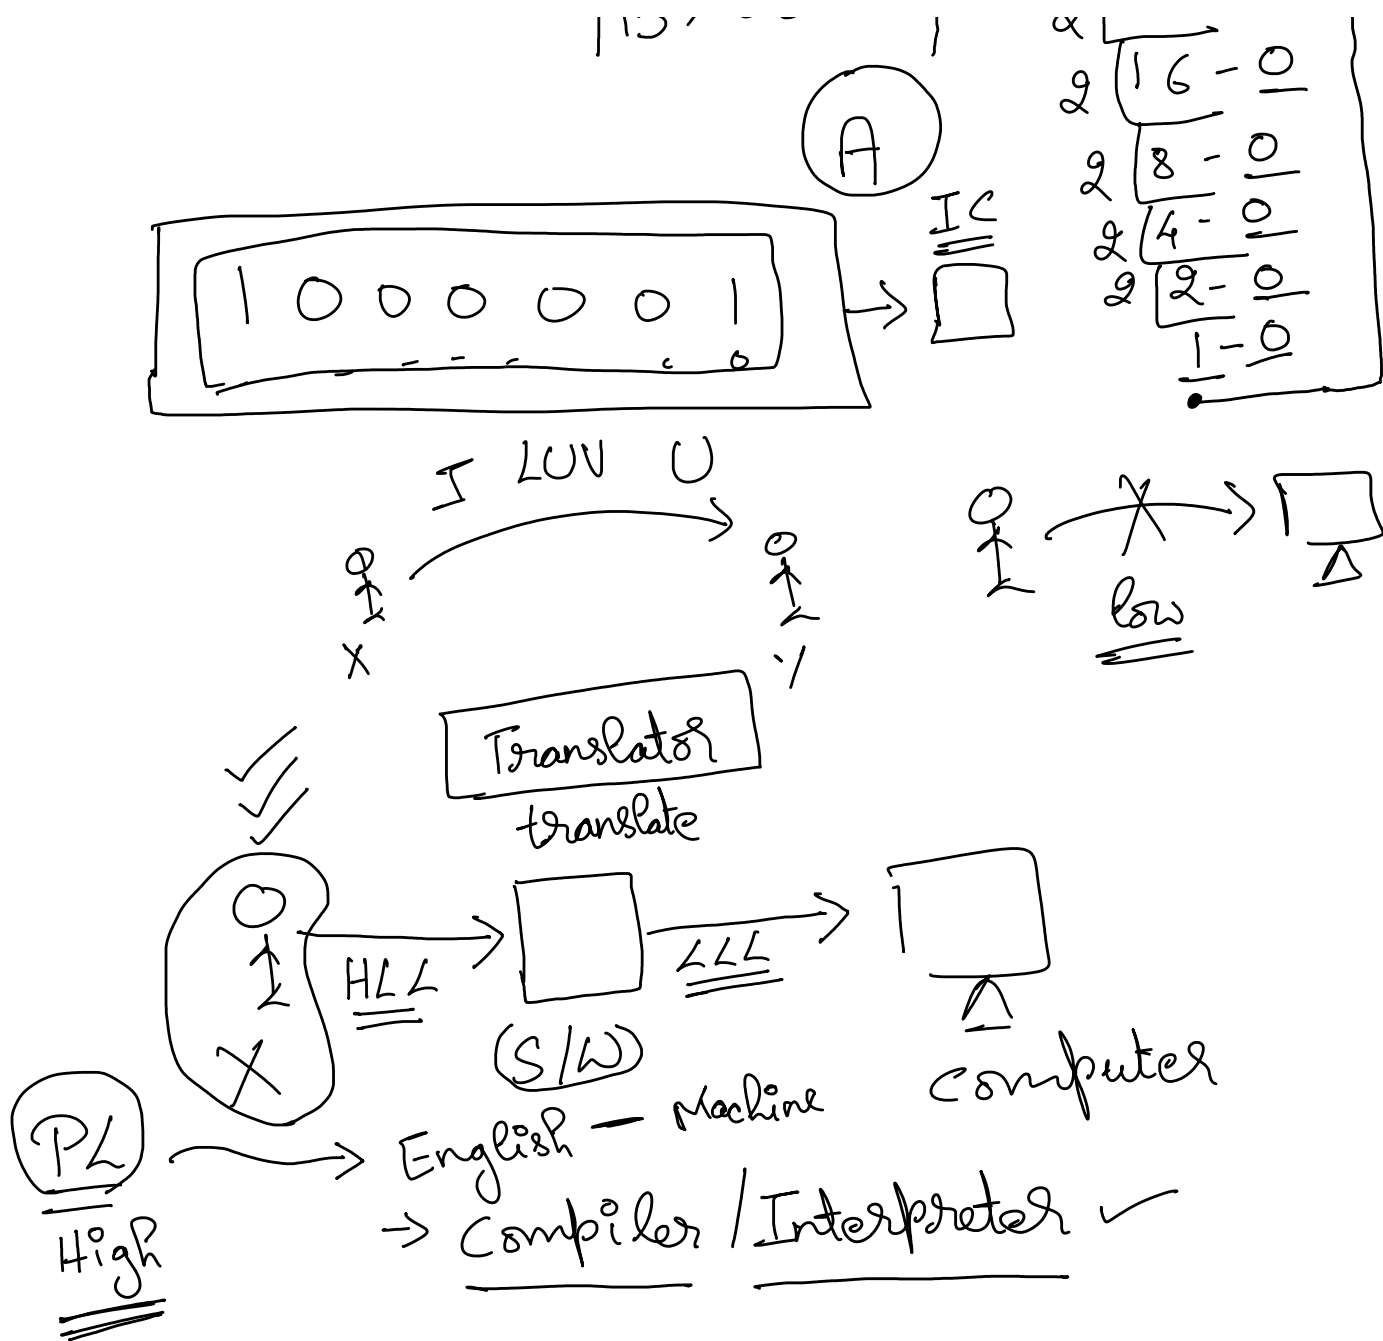 A
2 16 - 0
2 8 - 0
2 4 - 0
2 2 - 0
1 - 0
IC
1 0 0 0 0 0 1
I LUV U
X
Y
low
Translator
translate
HLL
LLL
X
(S/W)
computer
PL
High
English - Machine
→ Compiler / Interpreter ✓